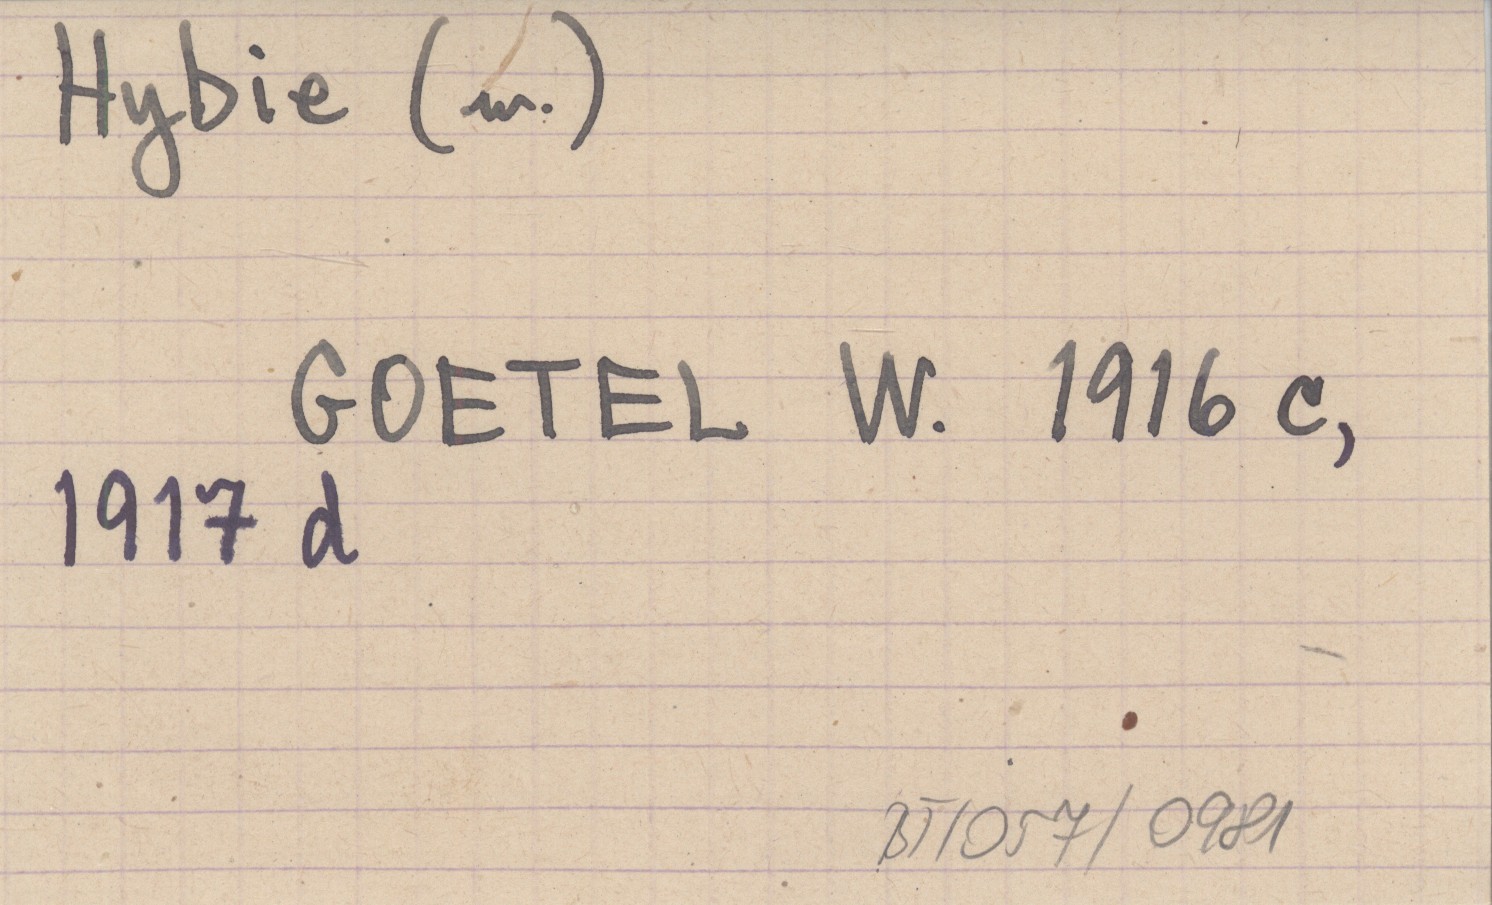 Hybie (m.)
GOETEL W. 1916 c,
1917 d
BT/057/0981